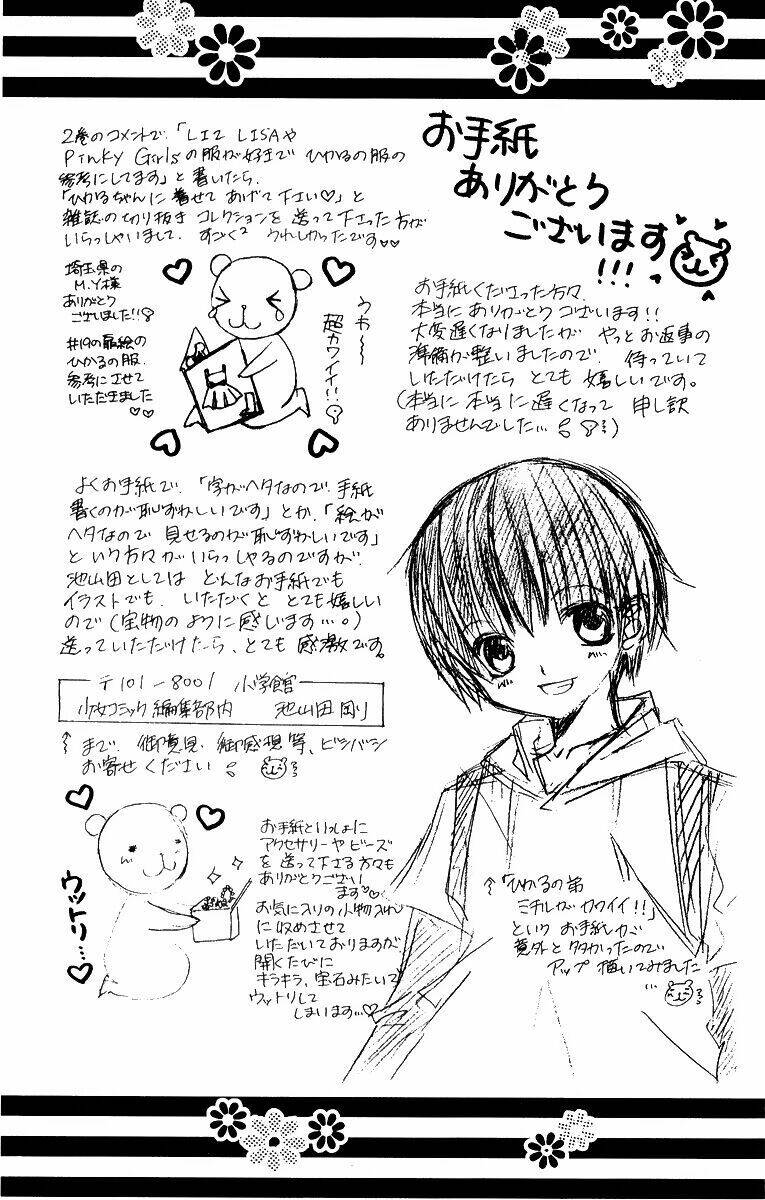 お手紙
ありがとう
ございます
!!!
お手紙くださった方々
本当にありがとうございます!!
大変遅くなりましたが やっとお返事の
準備が整いましたので、待っていて
いただけたら とても嬉しいです。
(本当に本当に遅くなって 申し訳
ありませんでした…)
2巻のコメントで、「LIZ LISAや
Pinky Girlsの服が好きで ひかるの服の
参考にしてます」と書いたら、
「ひかるちゃんに着せてあげて下さい♡」と
雑誌の切り抜き コレクションを 送って下さった方が
いらっしゃいまして、すごく² うれしかったです♡♡
埼玉県の
M.Y様
ありがとう
ございました!!
#19の扉絵の
ひかるの服、
参考にさせて
いただきました
♡♡
うわ〜〜
超カワイイ!!
よくお手紙で、「字がヘタなので、手紙
書くのが恥ずかしいです」とか、「絵が
ヘタなので 見せるのが恥ずかしいです」
という方々がいらっしゃるのですが、
池山田としては どんなお手紙でも
イラストでも、いただくと とても嬉しい
ので(宝物のように感じます…。)
送っていただけたら、とても 感激です。
〒101-8001 小学館
少女コミック編集部内 池山田剛
↑まで、御意見、御感想等、ビシバシ
お寄せください
お手紙といっしょに
アクセサリーやビーズ
を送って下さる方々も
ありがとうござい
ます♡
お気に入りの小物入れ
に収めさせて
いただいておりますが
開くたびに
キラキラ、宝石みたいで
ウットリして
しまいます…♡
ウットリ…♡
↑「ひかるの弟
ミチルがカワイイ!!」
という お手紙が
意外と多かったので
アップ 描いてみました
…